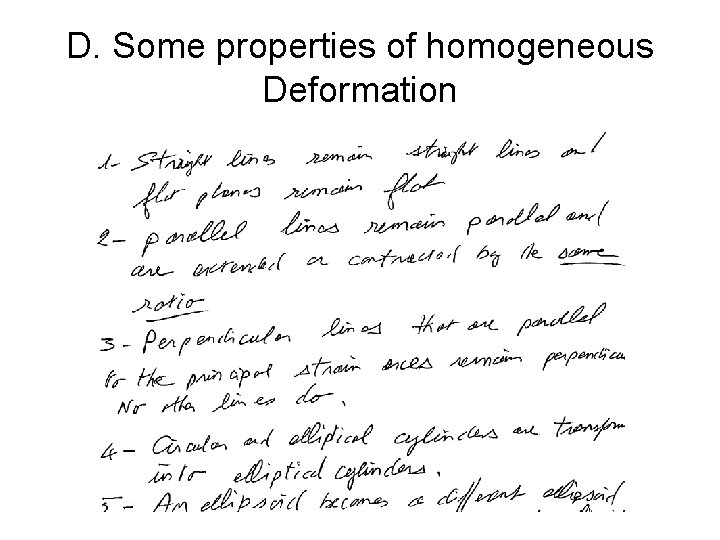 D. Some properties of homogeneous
Deformation
1- Straight lines remain straight lines and
flat planes remain flat
2- parallel lines remain parallel and
are extended or contracted by the same
ratio
3- Perpendicular lines that are parallel
to the principal strain axes remain perpendicu
No other lines do.
4- Circular and elliptical cylinders are transform
into elliptical cylinders.
5- An ellipsoid becomes a different ellipsoid